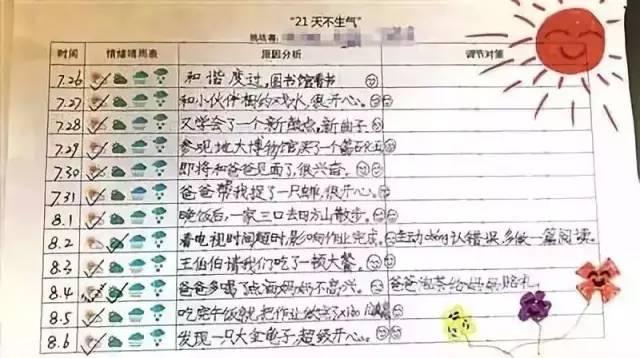 "21天不生气"
挑战者:
时间 情绪晴雨表 原因分析 调节对策
7.26 和谐度过,图书馆看书
7.27 和小伙伴相约戏水,很开心。
7.28 又学会了一个新鼓点,新曲子
7.29 参观地大博物馆买了一个
7.30 即将和爸爸见面了,很兴奋。
7.31 爸爸帮我捉了一只蝉,很开心。
8.1 晚饭后,一家三口去方山散步。
8.2 看电视时间超时,影响作业完成。 主动chéng认错误,多做一篇阅读。
8.3 王伯伯请我们吃了一顿大餐。
8.4 爸爸多喝了点酒妈妈不高兴。 爸爸泡茶给妈妈赔礼
8.5 吃完午饭就把作业做完了
8.6 发现一只大金龟子,超级开心。